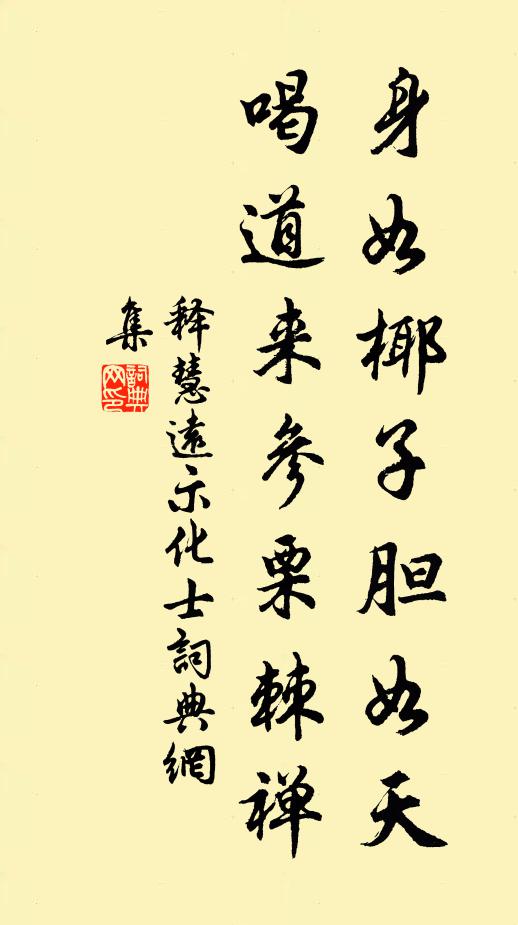 身如椰子胆如天
喝道来参栗棘禅
释慧远示化士詞典網
集
詞典
网印